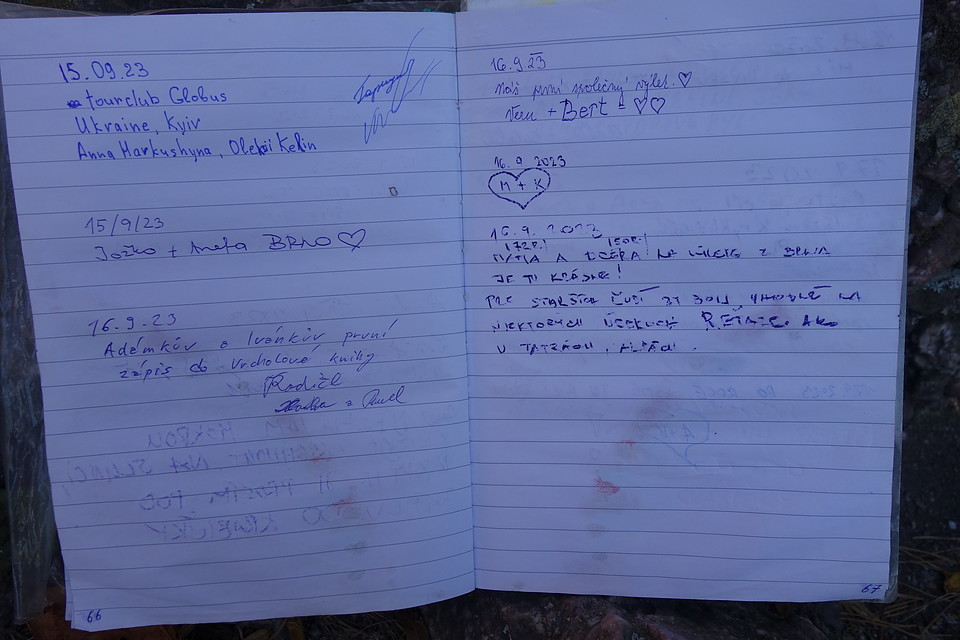 15.09.23
tourclub Globus
Ukraine, Kyiv
Anna Markushyna, Oleksii Kelin
15/9/23
Jožko + Aneta BRNO ♡
16.9.23
Adámkův a Ivánkův první
zápis do vrcholové knihy
Rodiče
a Pavel
66
16.9.23
Náš první společný výlet. ♡
+ Bert = ♡♡
16. 9. 2023
M + K
16. 9. 2023
172R! 150R!
A DCÉRA NA VÝLETE Z BRNA
JE TU KRÁSNE!
PRE STARŠÍCH ĽUDÍ BY BOLI VHODNÉ NA
NIEKTORÝCH ÚSEKOCH REŤAZE. AKO
V TATRÁCH,
67